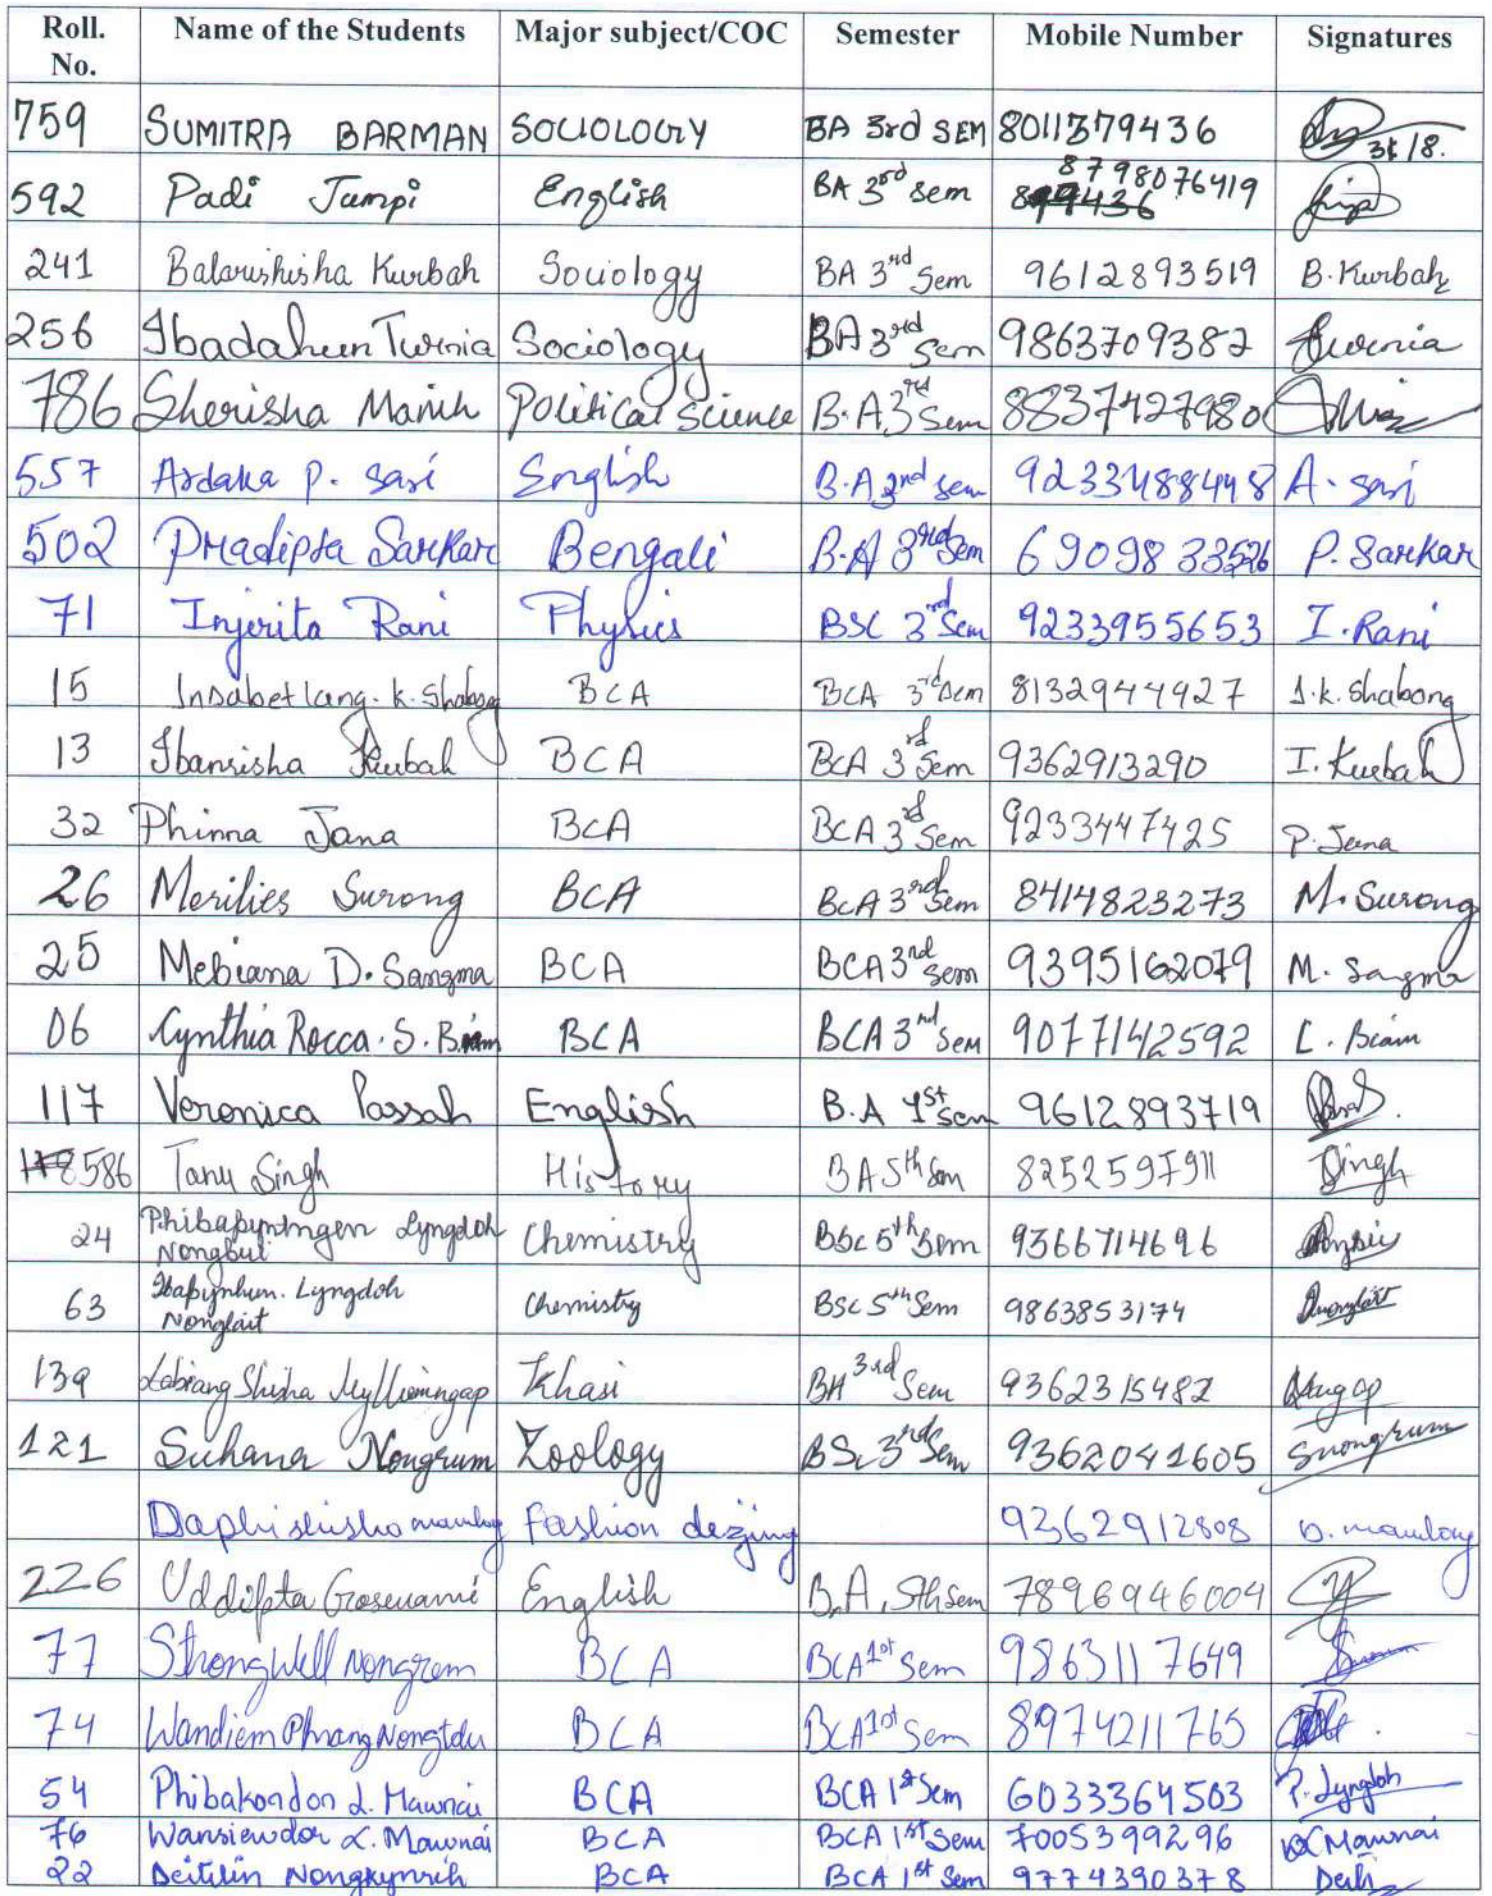 Roll. No. Name of the Students Major subject/COC Semester Mobile Number Signatures
759 SUMITRA BARMAN SOCIOLOGY BA 3rd SEM 8011379436
592 Padi Jumpi English BA 3rd sem 8798076419
241 Balarishisha Kurbah Sociology BA 3rd Sem 9612893519 B. Kurbah
256 Ibadahun Turnia Sociology BA 3rd Sem 9863709382 Turnia
786 Sherisha Manih Political Science B.A 3rd Sem 8837427980
557 Ardaka P. Sari English B.A 2nd sem 9233488448 A. Sari
502 Pradipta Sarkar Bengali B.A 3rd Sem 6909833526 P. Sarkar
71 Injorita Rani Physics BSC 3rd Sem 9233955653 I. Rani
15 Insabetlang. K. Shabong BCA BCA 3rd Sem 8132944927 I.K. Shabong
13 Ibansisha Kurbah BCA BCA 3rd Sem 9362913290 I. Kurbah
32 Phinna Jana BCA BCA 3rd Sem 9233447425 P. Jana
26 Merilies Surong BCA BCA 3rd Sem 8414823273 M. Surong
25 Mebiana D. Sangma BCA BCA 3rd Sem 9395162079 M. Sangma
06 Cynthia Rocca. S. Biam BCA BCA 3rd Sem 9077142592 C. Biam
117 Veronica Passah English B.A 1st Sem 9612893719
586 Tanu Singh History BA 5th Sem 8252597911 Singh
24 Phibapyntngen Lyngdoh Nongbui Chemistry BSc 5th Sem 9366714696
63 Ibapynhun. Lyngdoh Nonglait Chemistry BSc 5th Sem 9863853174
139 Labiang Shisha Mylliemngap Khasi BA 3rd Sem 9362315482
121 Suhana Nongrum Zoology BSc 3rd Sem 9362041605 Snongrum
Daphishisha mawlong Fashion dezing 9362912808 D. mawlong
226 Uddipta Goswami English B.A. 5th Sem 7896946004
77 StrongWell Nongrem BCA BCA 1st Sem 9863117649
74 Wandiem Phrang Nongtdu BCA BCA 1st Sem 8974211765
54 Phibakordor L. Mawnai BCA BCA 1st Sem 6033364503 P. Lyngdoh
76 Wansiewdor L. Mawnai BCA BCA 1st Sem 7005399296 Mawnai
22 Deitilin Nongkynrih BCA BCA 1st Sem 9774390378